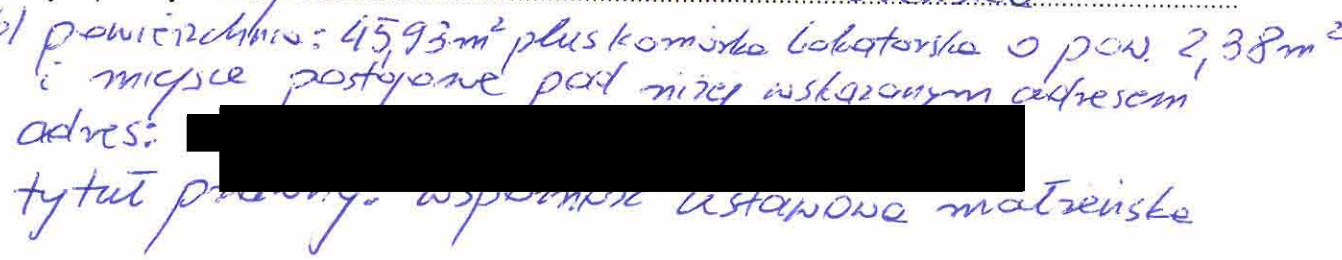 powierzchnia: 45,93m² plus komórka lokatorska o pow. 2,38m²
i miejsce postojowe pod niżej wskazanym adresem
adres:
tytuł prawny: wspólność ustawowa małżeńska